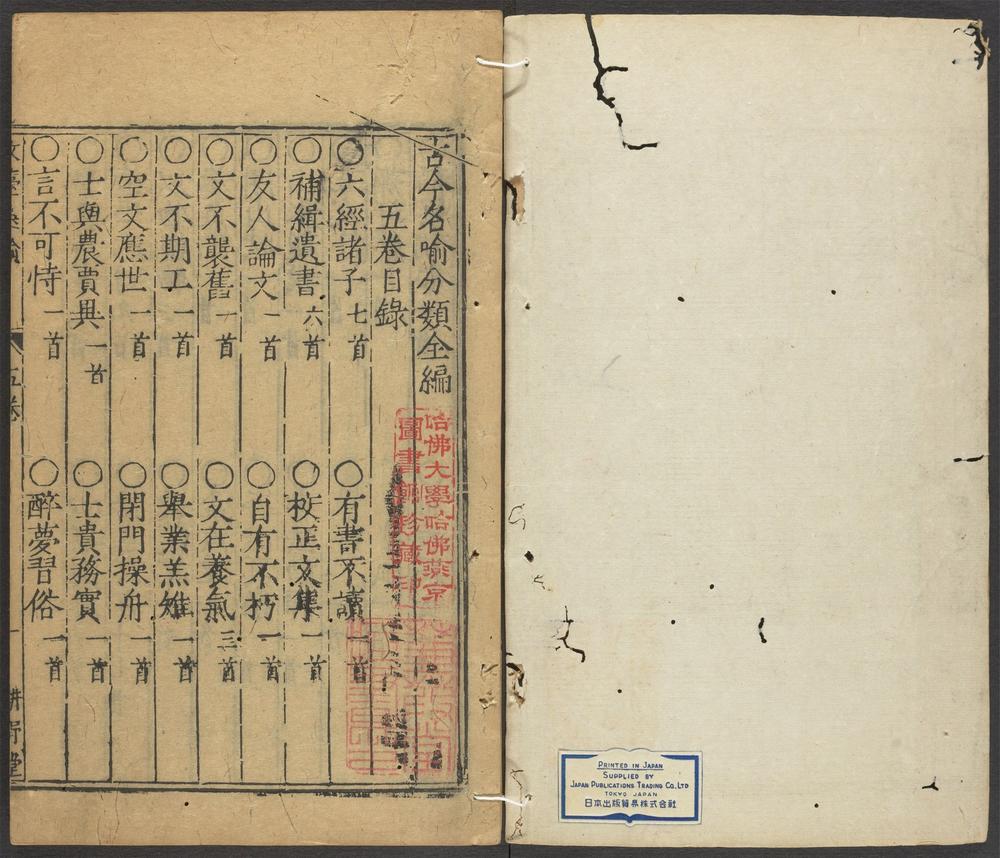 古今名喻分類全編
五卷目錄
○六經諸子 七首 ○有書不讀 一首
○補緝遺書 六首 ○校正文集 一首
○友人論文 一首 ○自有不朽 一首
○文不襲舊 一首 ○文在養氣 三首
○文不期工 一首 ○舉業羔雉 一首
○空文應世 一首 ○閉門操舟 一首
○士與農賈異 一首 ○士貴務實 一首
○言不可恃 一首 ○醉夢習俗 一首
五卷 一 耕野堂
哈佛大學哈佛燕京
圖書館珍藏印
PRINTED IN JAPAN
SUPPLIED BY
JAPAN PUBLICATIONS TRADING CO., LTD
TOKYO JAPAN
日本出版貿易株式会社